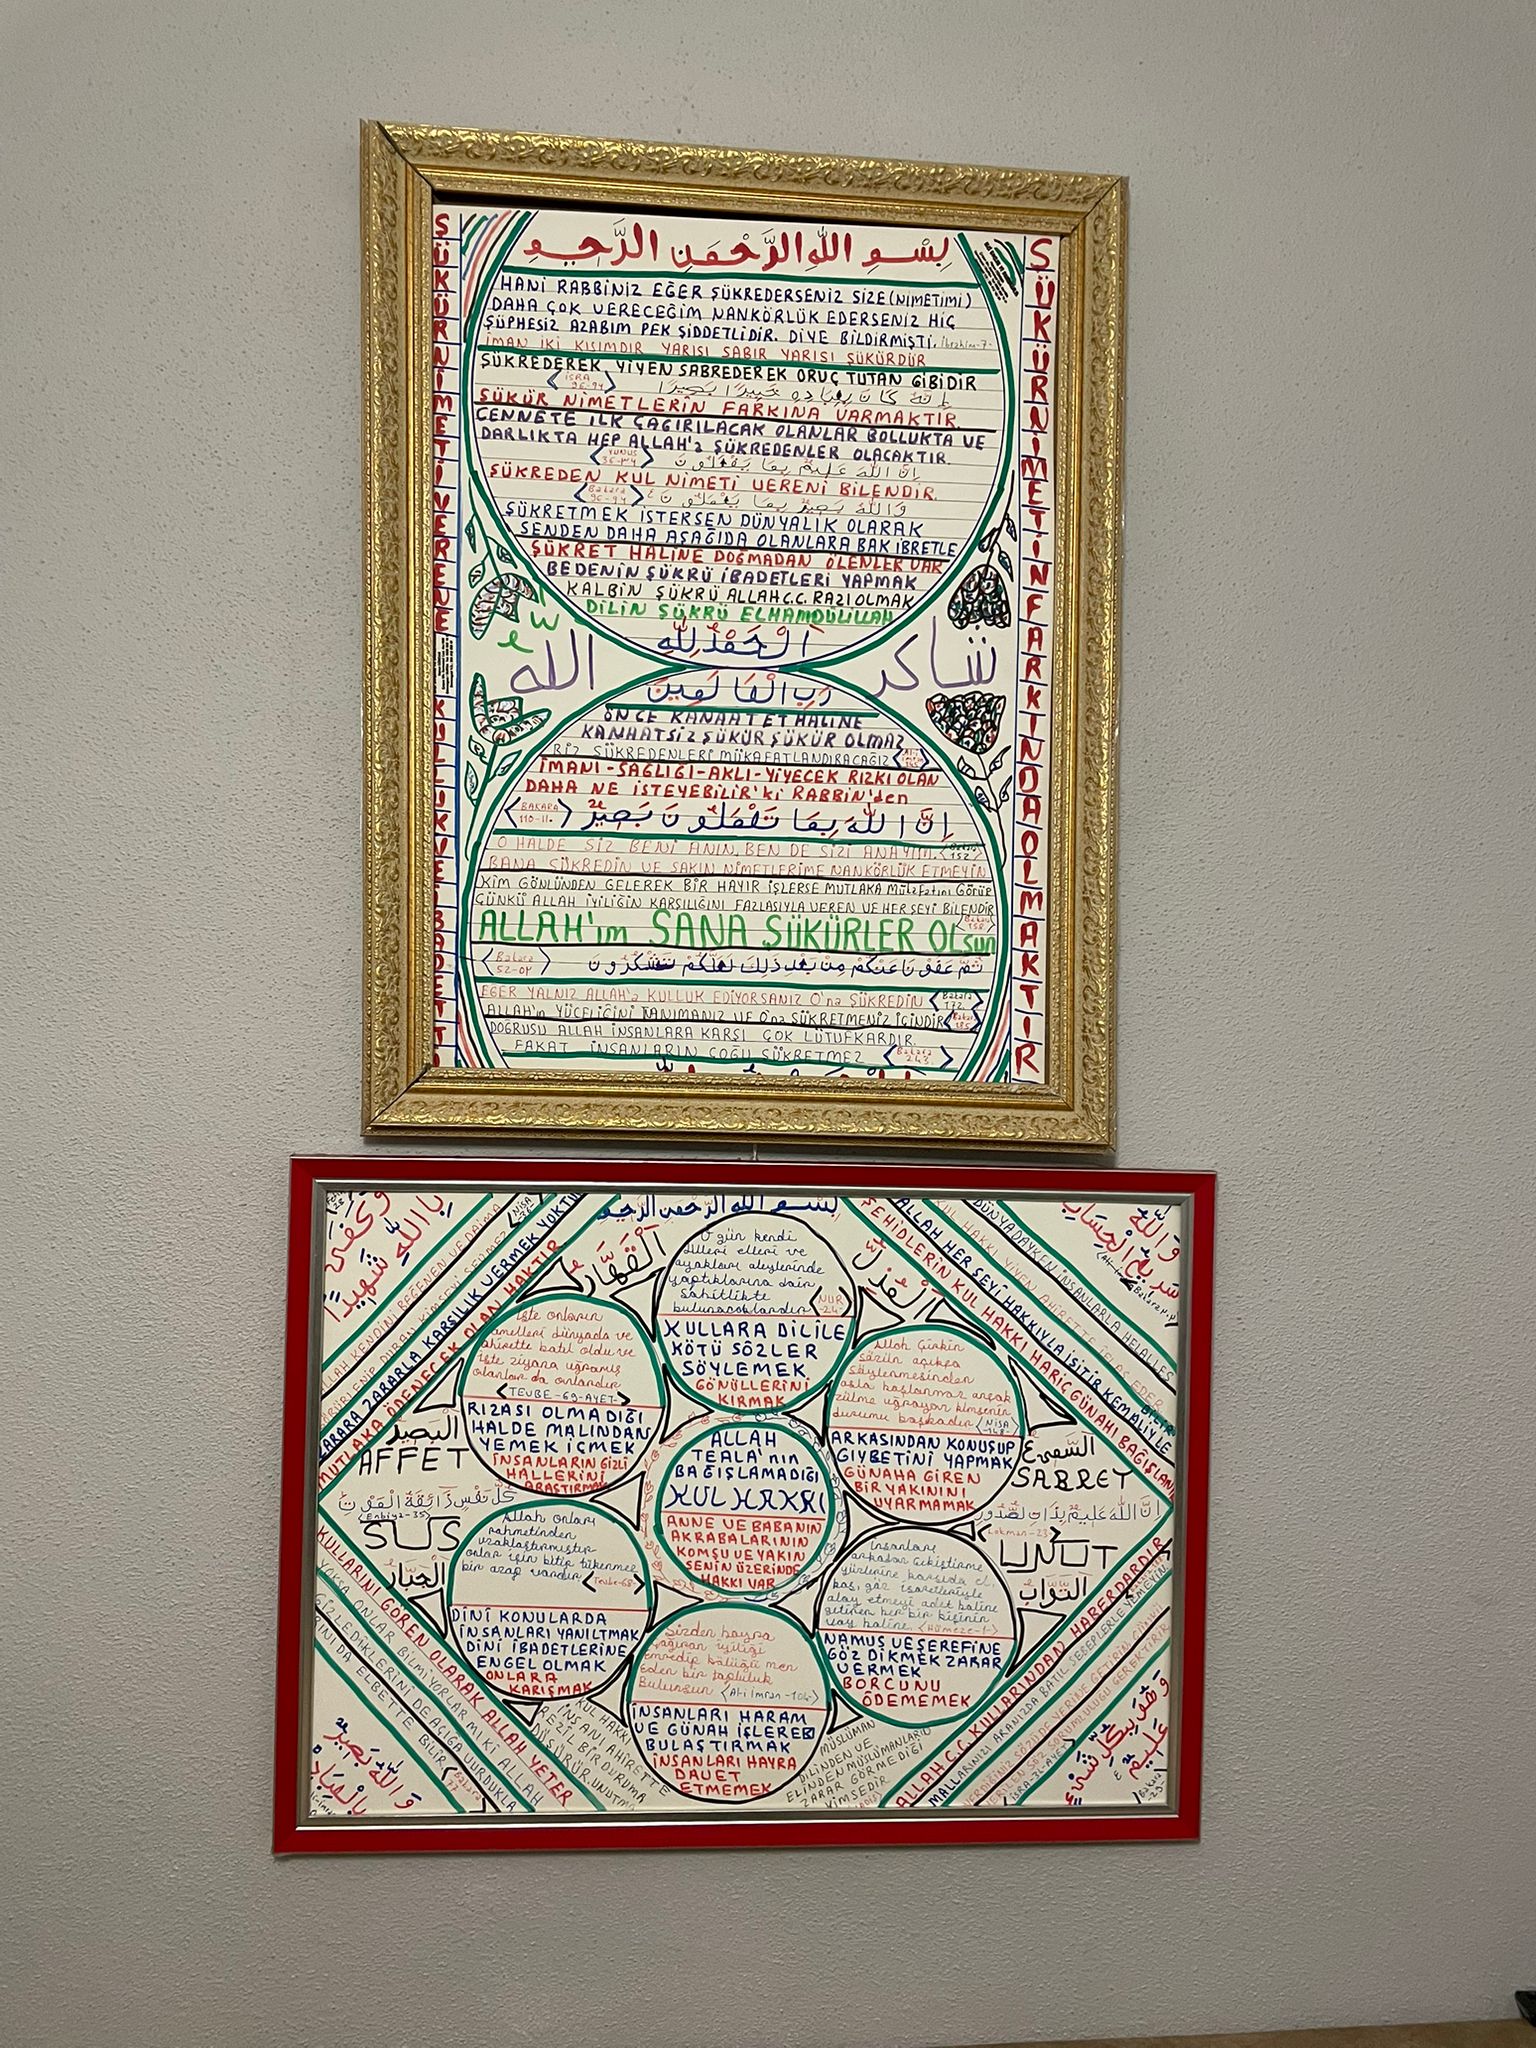 بِسْمِ اللهِ الرَّحْمَنِ الرَّحِيمِ
HANİ RABBİNİZ EĞER ŞÜKREDERSENİZ SİZE (NİMETİMİ)
DAHA ÇOK VERECEĞİM NANKÖRLÜK EDERSENİZ HİÇ
ŞÜPHESİZ AZABIM PEK ŞİDDETLİDİR. DİYE BİLDİRMİŞTİ. İbrahim-7-
İMAN İKİ KISIMDIR YARISI SABIR YARISI ŞÜKÜRDÜR
ŞÜKREDEREK YİYEN SABREDEREK ORUÇ TUTAN GİBİDİR
İSRA
ŞÜKÜR NİMETLERİN FARKINA VARMAKTIR.
CENNETE İLK ÇAĞIRILACAK OLANLAR BOLLUKTA VE
DARLIKTA HEP ALLAH'a ŞÜKREDENLER OLACAKTIR.
YUNUS
ŞÜKREDEN KUL NİMETİ VERENİ BİLENDİR.
Bakara
ŞÜKRETMEK İSTERSEN DÜNYALIK OLARAK
SENDEN DAHA AŞAĞIDA OLANLARA BAK İBRETLE
ŞÜKRET HALİNE DOĞMADAN ÖLENLER VAR
BEDENİN ŞÜKRÜ İBADETLERİ YAPMAK
KALBİN ŞÜKRÜ ALLAH C.C. RAZI OLMAK
DİLİN ŞÜKRÜ ELHAMDÜLİLLAH
اَلْحَمْدُ لِلّٰهِ
الله
شاكر
رَبِّ الْعَالَمِينَ
ÖNCE KANAAT ET HALİNE
KANAATSİZ ŞÜKÜR ŞÜKÜR OLMAZ
BİZ ŞÜKREDENLERİ MÜKAFATLANDIRACAĞIZ
İMANI-SAĞLIĞI-AKLI-YİYECEK RIZKI OLAN
DAHA NE İSTEYEBİLİR'Kİ RABBİN'den
BAKARA
110-11.
اِنَّ اللهَ بِمَا تَعْمَلُونَ بَصِيرٌ
O HALDE SİZ BENİ ANIN. BEN DE SİZİ ANAYIM. Bakara 152
BANA ŞÜKREDİN VE SAKIN NİMETLERİME NANKÖRLÜK ETMEYİN
KİM GÖNLÜNDEN GELEREK BİR HAYIR İŞLERSE MUTLAKA Mükafatını Görür
ÇÜNKÜ ALLAH İYİLİĞİN KARŞILIĞINI FAZLASIYLA VEREN VE HER ŞEYİ BİLENDİR
Bakara 158
ALLAH'ım SANA ŞÜKÜRLER OLsun
Bakara
ثُمَّ عَفَوْنَا عَنْكُمْ مِنْ بَعْدِ ذَلِكَ لَعَلَّكُمْ تَشْكُرُونَ
EĞER YALNIZ ALLAH'a KULLUK EDİYORSANIZ O'na ŞÜKREDİN Bakara 172
ALLAH'ın YÜCELİĞİNİ TANIMANIZ VE O'na ŞÜKRETMENİZ İÇİNDİR Bakara 185
DOĞRUSU ALLAH İNSANLARA KARŞI ÇOK LÜTUFKARDIR.
FAKAT İNSANLARIN ÇOĞU ŞÜKRETMEZ Bakara 243
ŞÜKÜR NİMETİ VERENE KULLUK VE İBADETTİ
ŞÜKÜR NİMETİN FARKINDA OLMAKTIR
بِسْمِ اللهِ الرَّحْمَنِ الرَّحِيمِ
O gün kendi
dilleri elleri ve
ayakları aleyhlerinde
yaptıklarına dair
şahitlikte
bulunacaklardır NUR -24-
KULLARA DİLİLE
KÖTÜ SÖZLER
SÖYLEMEK
GÖNÜLLERİNİ
KIRMAK
اَلْقَهَّارُ
İşte onların
amelleri dünyada ve
ahirette batıl oldu ve
işte ziyana uğramış
olanlar da onlardır
TEVBE-69-AYET-
RIZASI OLMADIĞI
HALDE MALINDAN
YEMEK İÇMEK
İNSANLARIN GİZLİ
HALLERİNİ
ARAŞTIRMAK
Allah Çirkin
sözün açıkça
söylenmesinden
asla hoşlanmaz ancak
zulme uğrayan kimsenin
durumu başkadır NİSA -148-
ARKASINDAN KONUŞUP
GIYBETİNİ YAPMAK
GÜNAHA GİREN
BİR YAKININI
UYARMAMAK
ALLAH
TEALA'nın
BAĞIŞLAMADIĞI
KUL HAKKI
ANNE VE BABANIN
AKRABALARININ
KOMŞU VE YAKIN
SENİN ÜZERİNDE
HAKKI VAR
Allah onları
rahmetinden
uzaklaştırmıştır
onlar için bitip tükenmez
bir azap vardır
Tevbe-68-
DİNİ KONULARDA
İNSANLARI YANILTMAK
DİNİ İBADETLERİNE
ENGEL OLMAK
ONLARA
KARIŞMAK
İnsanları
arkadan çekiştirme
yüzlerine karşıda el,
kaş, göz işaretleriyle
alay etmeyi adet haline
getiren her bir kişinin
vay haline. Hümeze-1-
NAMUS VE ŞEREFİNE
GÖZ DİKMEK ZARAR
VERMEK
BORCUNU
ÖDEMEMEK
Sizden hayra
çağıran iyiliği
emredip kötülüğü men
eden bir topluluk
Bulunsun Al-i İmran-104-
İNSANLARI HARAM
VE GÜNAH İŞLERE
BULAŞTIRMAK
İNSANLARI HAYRA
DAVET
ETMEMEK
البصير
AFFET
كُلُّ نَفْسٍ ذَائِقَةُ الْمَوْتِ
Enbiya-35
SUS
الجبار
السميع
SABRET
اِنَّ اللهَ عَلِيمٌ بِذَاتِ الصُّدُورِ
Lokman-23
UNUT
التَّوَّابُ
وَكَفَى
بِاللهِ شَهِيدًا
ALLAH KENDİNİ BEĞENEN VE DAİMA
BÖBÜRLENİP DURAN KİMSEYİ SEVMEZ NİSA
ZARARA ZARARLA KARŞILIK VERMEK YOKTUR
MUTLAKA ÖDENECEK OLAN HAKTIR
وَاللهُ
سَرِيعُ الْحِسَابِ
DÜNYADAYKEN İNSANLARLA HELALLEŞ
KUL HAKKI YİYEN AHİRETTE İFLAS EDER
ALLAH HER ŞEYİ HAKKIYLA İŞİTİR KEMALİYLE BİLİR
ŞEHİDLERİN KUL HAKKI HARİÇ GÜNAHI BAĞIŞLANIR
KULLARINI GÖREN OLARAK ALLAH YETER
YOKSA ONLAR BİLMİYORLAR MI Kİ ALLAH
GİZLEDİKLERİNİ DE AÇIĞA VURDUKLA
RINI DA ELBETTE BİLİR Bakara
وَاللهُ بَصِيرٌ
بِالْعِبَادِ
KUL HAKKI
İNSANI AHİRETTE
REZİL BİR DURUMA
DÜŞÜRÜR. UNUTMA
MÜSLÜMAN
DİLİNDEN VE
ELİNDEN MÜSLÜMANLARIN
ZARAR GÖRMEDİĞİ
KİMSEDİR
ALLAH C.C. KULLARINDAN HABERDARDIR
MALLARINIZI ARANIZDA BATIL SEBEPLERLE YEMEYİN
VERDİĞİNİZ SÖZÜ DE YERİNE GETİRİN ÇÜNKÜ
VERİLEN SÖZ SORUMLULUĞU GEREKTİRİR
وَهُوَ بِكُلِّ شَيْءٍ
عَلِيمٌ